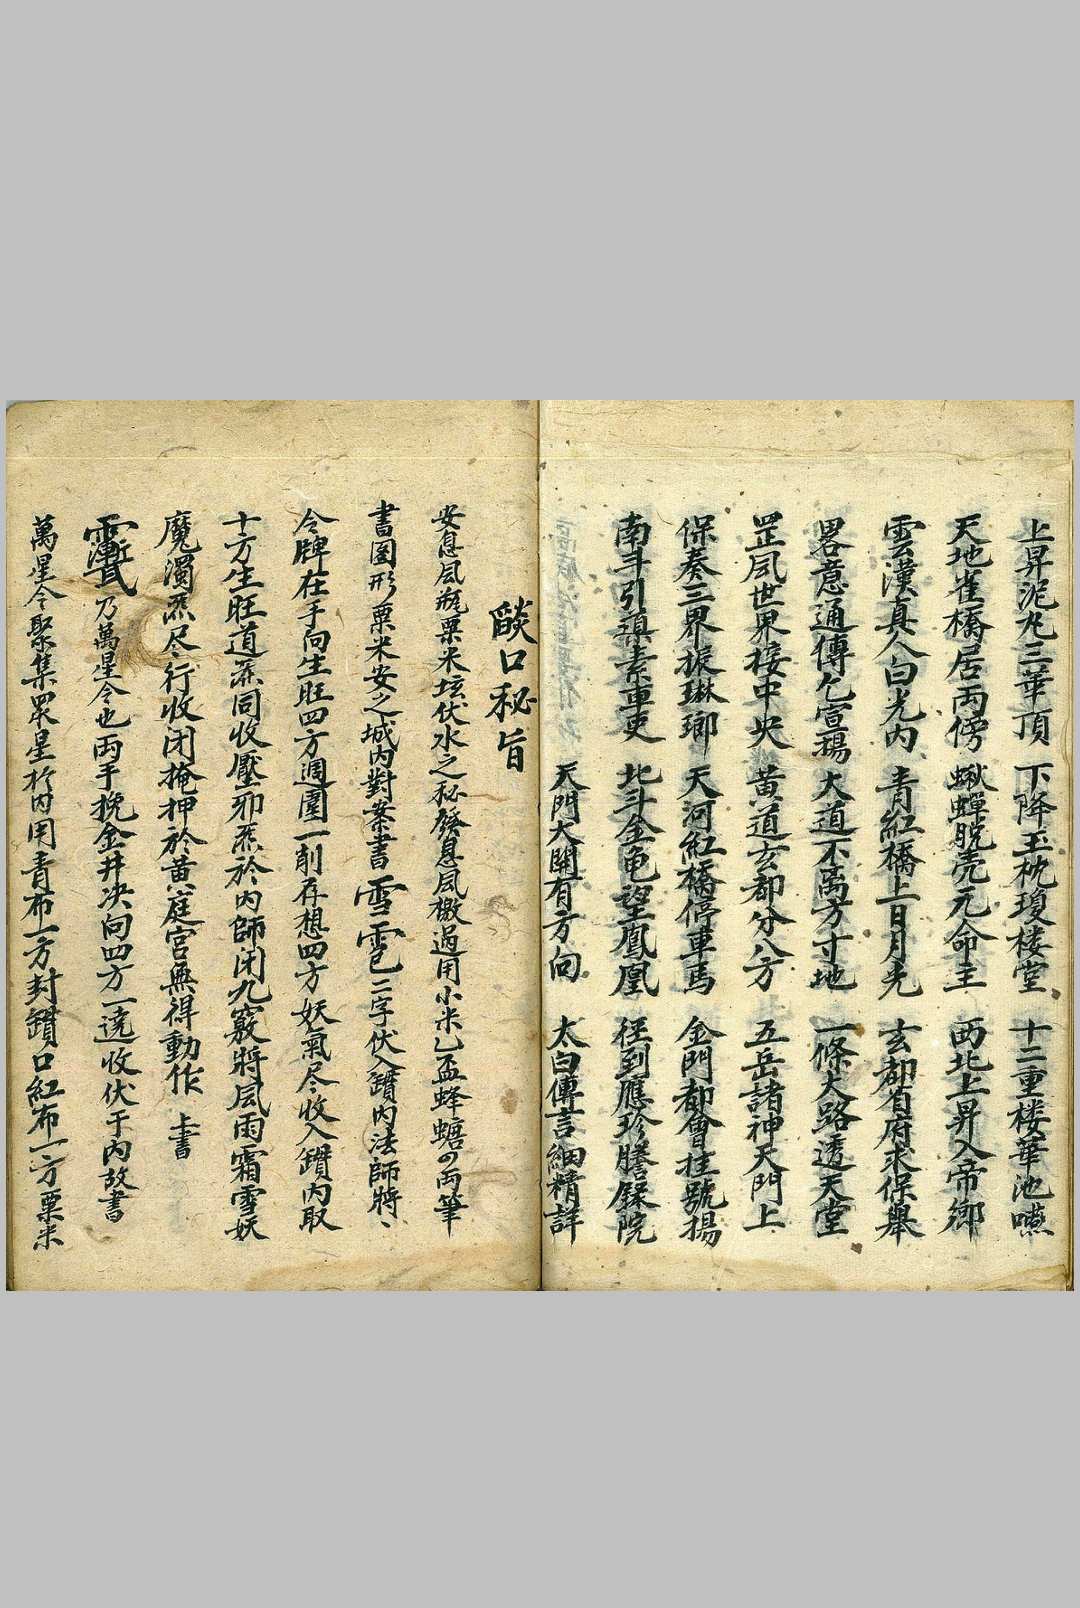 上昇泥丸三華頂 下降玉枕瓊楼堂 十二重楼華池嚥
天地雀橋居両傍 蜘蟬脱壳元命主 西北上昇入帝鄉
雲漢真人白光内 青紅橋上日月光 玄都省府求保舉
畧意通傳乞宣揚 大道不离方寸地 一條大路透天堂
罡風世界接中央 黄道玄都分八方 五岳諸神天門上
保奏三界振琳瑯 天河紅橋停車馬 金門都會挂號揚
南斗引導素車吏 北斗金龟望鳳凰 径到應珍謄錄院
天門大開有方向 太白傳言細精詳
燄口秘旨
安息風瓶粟米坛伏水之秘發息風檄過用小米乙盃蜂蟮の両筆
書圖形粟米安之城内對案書 二字伏入鐟内法師將〻
令牌在手向生旺四方週圍一削存想四方妖氣尽收入鐟内取
十方生旺道炁同收壓邪炁於内師闭九竅將風雨霜雪妖
魔濁炁尽行收闭掩押於黄庭宫無得動作 上書
乃萬星令也両手挽金井决向四方一遶收伏于内故書
萬星令聚集眾星於内用青布一方封鐟口紅布一方粟米